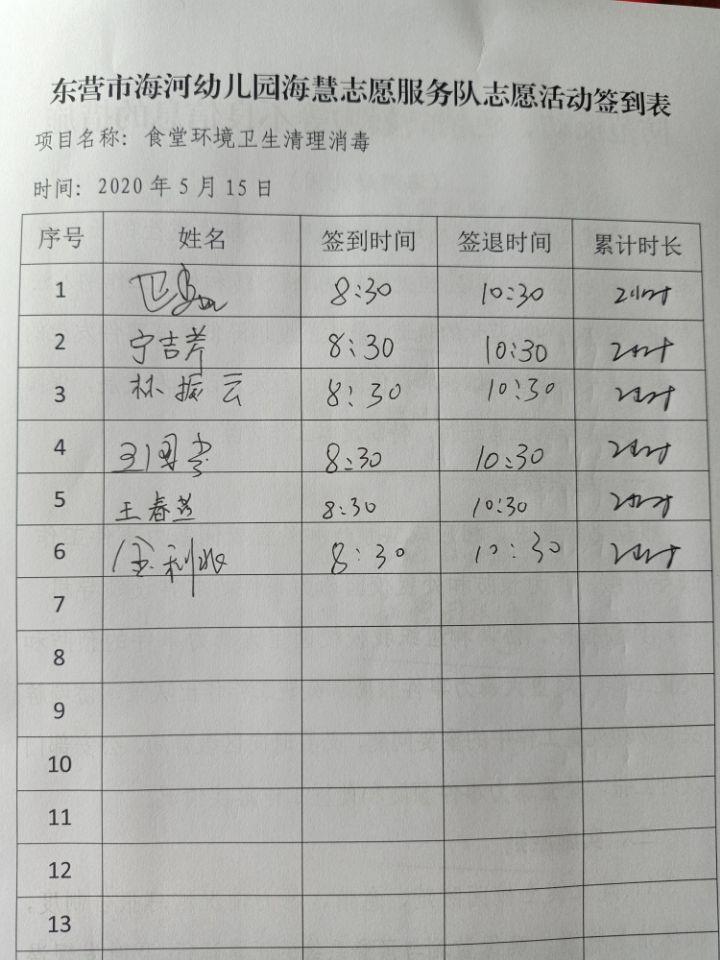 东营市海河幼儿园海慧志愿服务队志愿活动签到表
项目名称：食堂环境卫生清理消毒
时间：2020 年 5 月 15 日
序号 姓名 签到时间 签退时间 累计时长
1 8:30 10:30 2小时
2 宁吉芹 8:30 10:30 2小时
3 林振云 8:30 10:30 2小时
4 8:30 10:30 2小时
5 王春燕 8:30 10:30 2小时
6 8:30 10:30 2小时
7
8
9
10
11
12
13